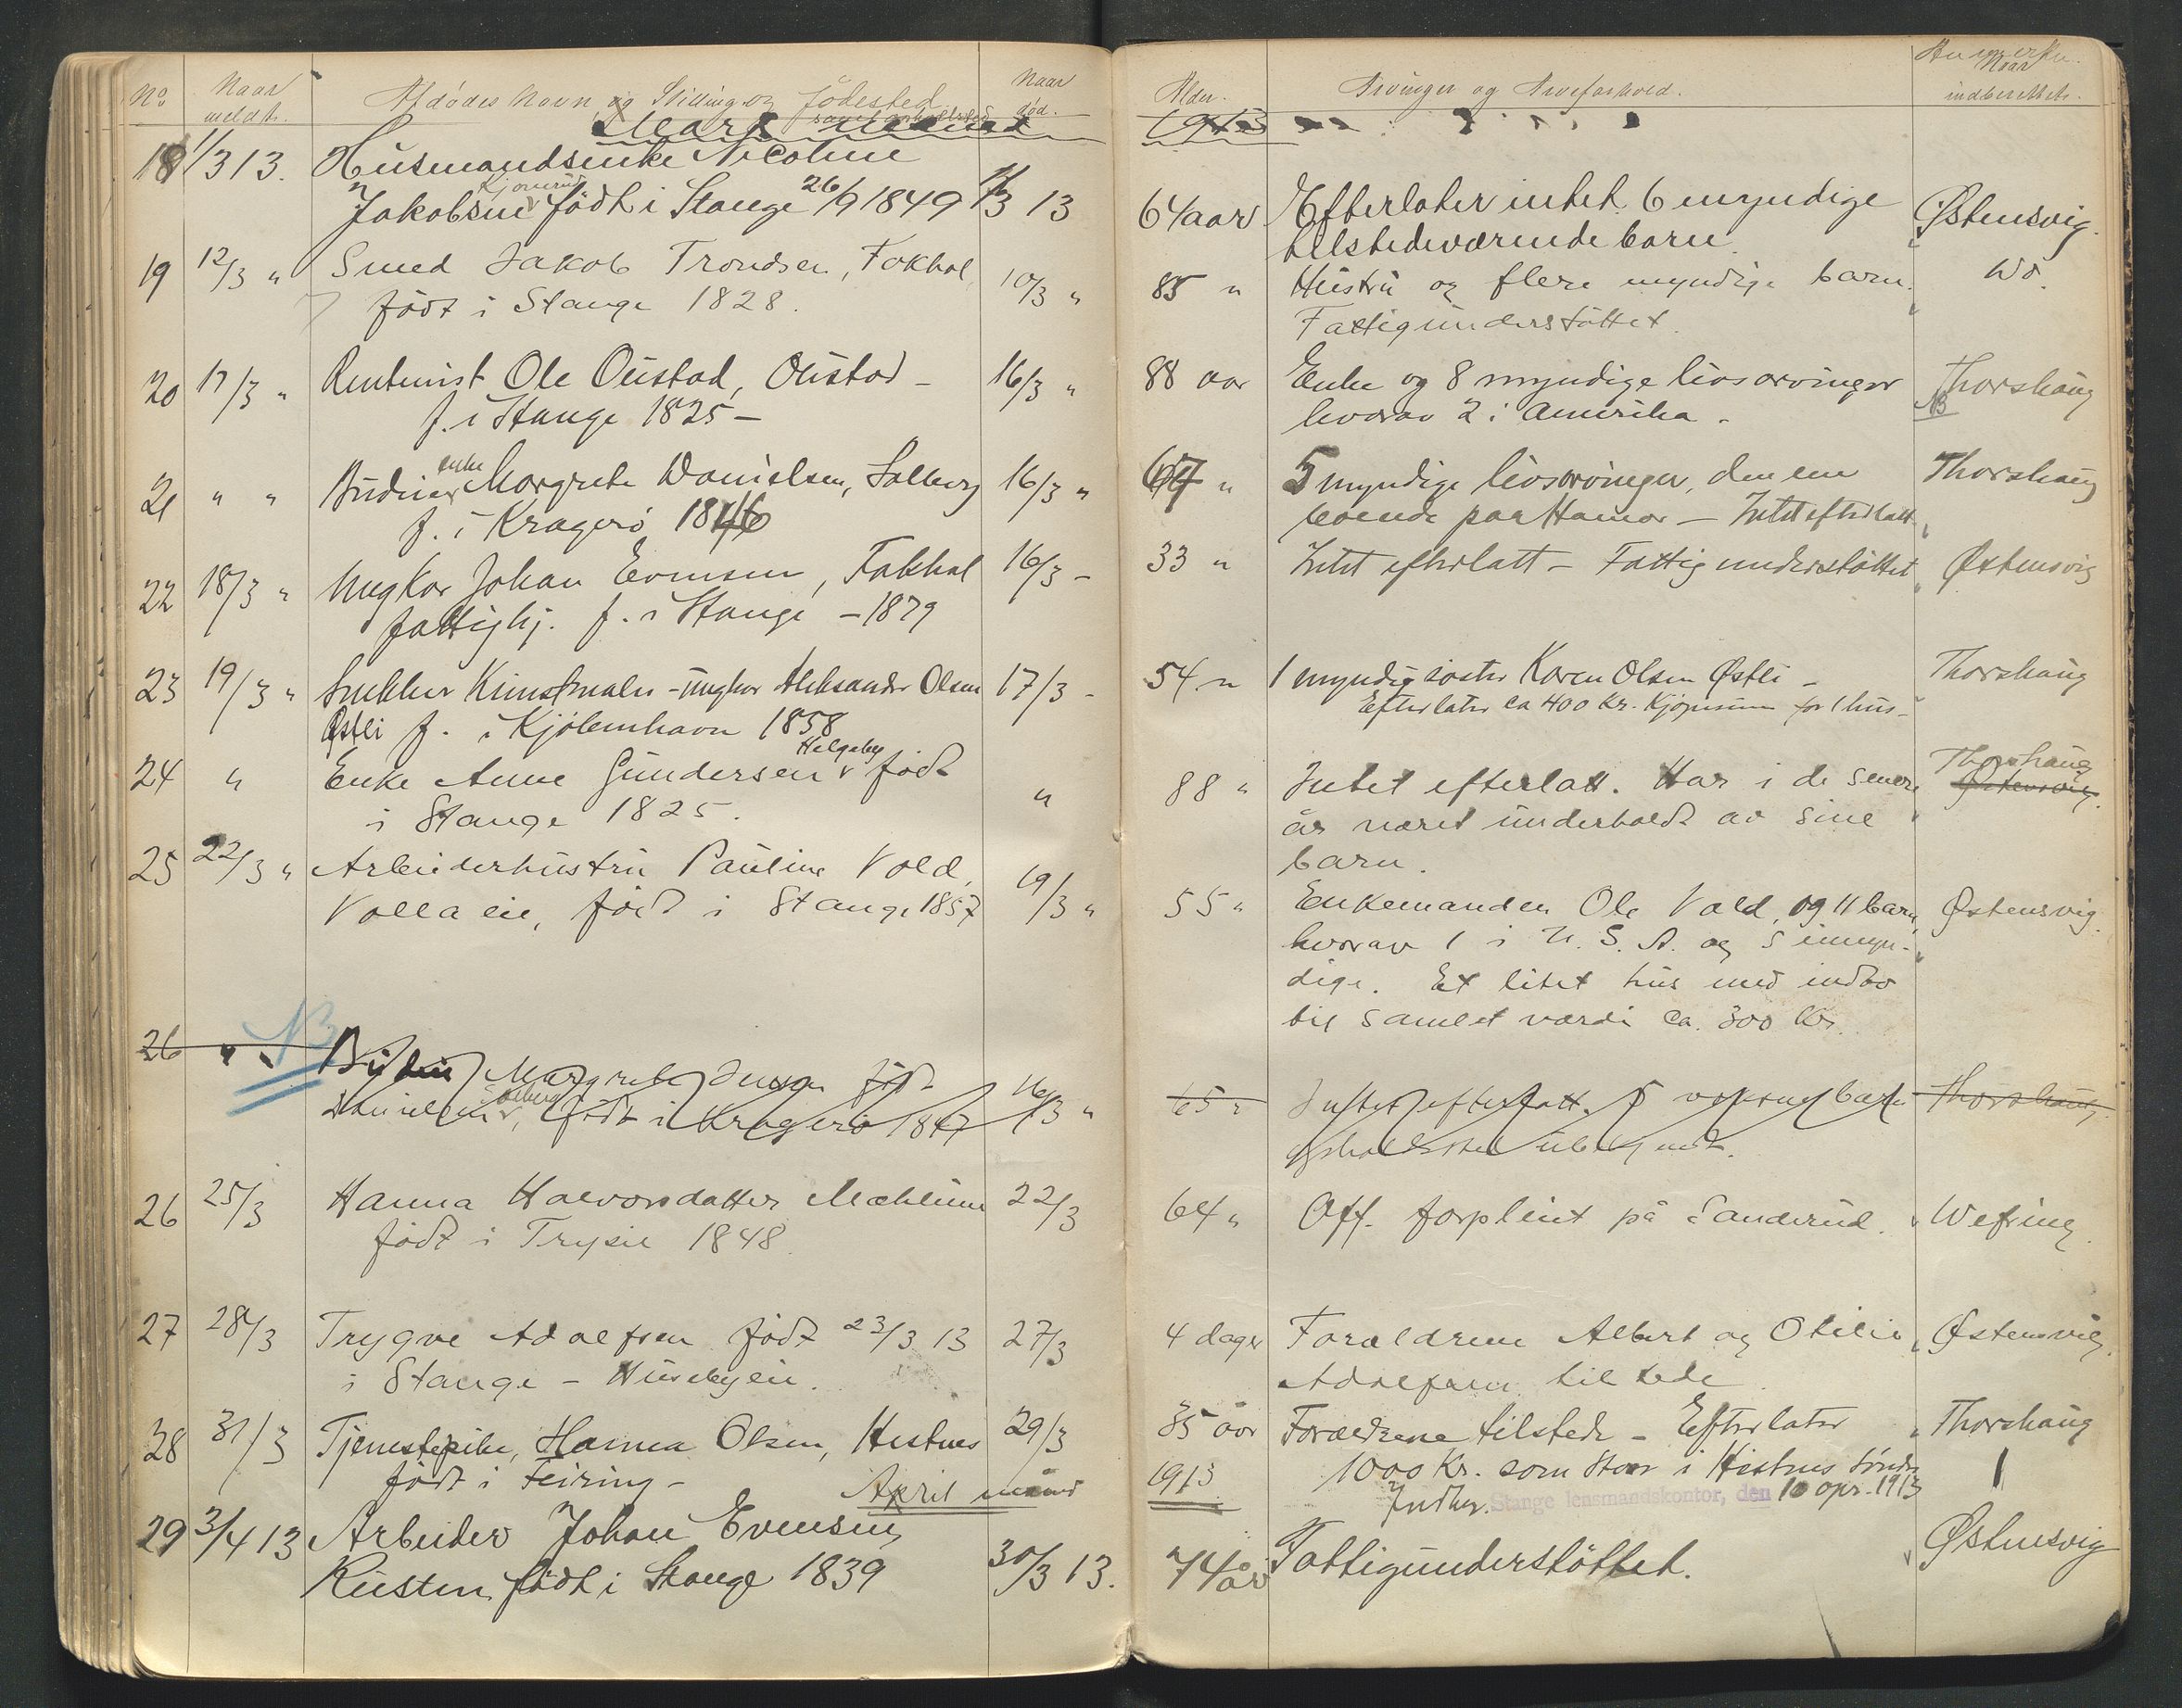 No
Naar meldt.
Afdødes Navn, og Stilling og Fødested samt opholdssted
Naar død.
Alder.
Arvinger og Arveforhold.
Anmerkn.
Naar indberettet.
Mars maaned
1913
18 1/3 13. Husmandsenke Nicoline
Jakobsen Kjonerud født i Stange 26/9 1849 1/3 13 64 aar Efterlater intet. 6 myndige Østensvig.
tilstedeværende barn.
19 12/3 " Smed Jakob Trondsen, Fokhol 10/3 " 85 " Hustru og flere myndige barn. do.
født i Stange 1828. Fattigunderstøttet.
20 17/3 " Rentenist Ole Oustad, Oustad - 16/3 " 88 aar Enke og 8 myndige livsarvinger Thorshaug
f. i Stange 1825 - hvorav 2 i Amerika. NB
21 " " Budeier enke Margrete Danielsen, Solberg 16/3 " 67 " 5 myndige livsarvinger, den ene Thorshaug
f. i Kragerø 1846 boende paa Hamar - Intet efterlatt
22 18/3 " Ungkar Johan Evensen, Fokhol 16/3 - 33 " Intet efterlatt - Fattigunderstøttet Østensvig
fattighj. f. i Stange - 1879
23 19/3 " Snekker Kunstmaler - ungkar Aleksander Olsen 17/3 - 54 " 1 myndig søster Karen Olsen Østli - Thorshaug
Østli f. i Kjøbenhavn 1858 Efterlater ca 400 Kr. Kjøpesum for 1 hus -
24 " Enke Anne Gundersen Helgeby født " 88 " Intet efterlatt. Har i de senere Thorshaug Østensvig.
i Stange 1825. år været underholdt av sine
barn.
25 22/3 " Arbeiderhustru Pauline Vold, 19/3 " 55 " Enkemanden Ole Vold, og 11 barn, Østensvig.
Volla eie, født i Stange 1857 hvorav 1 i U.S.A. og 5 umyn-
dige. Et litet hus med indbo
til samlet værdi ca. 300 Kr.
26 " " NB Margrete Jensen født 16/3 " 65 " Intet efterlatt. 5 voksne barn Thorshaug
Danielsen Solberg, født i Kragerø 1847 opholdssted ubekjendt.
26 25/3 Hanna Halvorsdatter Mæhlum 22/3 64 " Off. forpleiet på Sanderud. Wefring.
født i Trysil 1848.
27 28/3 Trygve Adolfsen født 23/3 13 27/3 4 dager Forældrene Albert og Otilie Østensvig.
i Stange - Husebyeie. Adolfsen tilstede
28 31/3 Tjenestepike, Hanna Olsen, Hestnes 29/3 35 aar Forældrene tilstede - Efterlater Thorshaug
født i Feiring - 1000 Kr. som staar i Hestnes søndre
April måned
1913
Indber. Stange lensmandskontor, den 10 apr. 1913
29 3/4 13 Arbeider Johan Evensen
Rusten, født i Stange 1839 30/3 13. 74 år Fattigunderstøttet. Østensvig